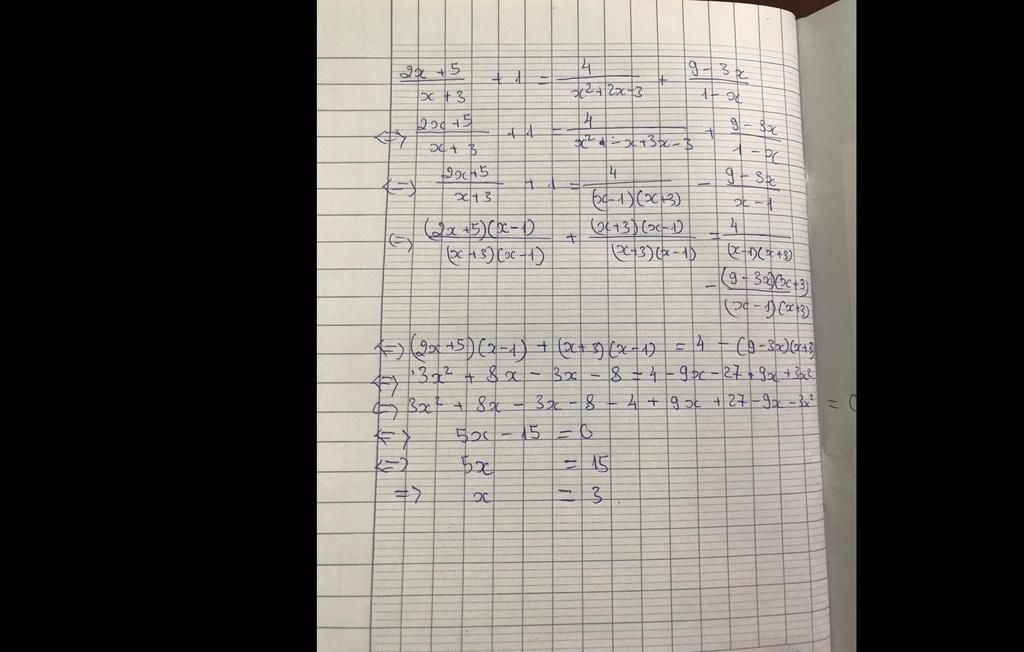 (2x+5)/(x+3) + 1 = 4/(x²+2x-3) + (9-3x)/(1-x)
<=> (2x+5)/(x+3) + 1 = 4/(x² - x+3x-3) + (9-3x)/(1-x)
<=> (2x+5)/(x+3) + 1 = 4/((x-1)(x+3)) - (9-3x)/(x-1)
<=> ((2x+5)(x-1))/((x+3)(x-1)) + ((x+3)(x-1))/((x+3)(x-1)) = 4/((x-1)(x+3))
- ((9-3x)(x+3))/((x-1)(x+3))
<=> (2x+5)(x-1) + (x+3)(x-1) = 4 - (9-3x)(x+3
<=> 3x² + 8x - 3x - 8 = 4 - 9x - 27 + 9x + 3x²
<=> 3x² + 8x - 3x - 8 - 4 + 9x + 27 - 9x - 3x² = 0
<=> 5x - 15 = 0
<=> 5x = 15
=> x = 3.